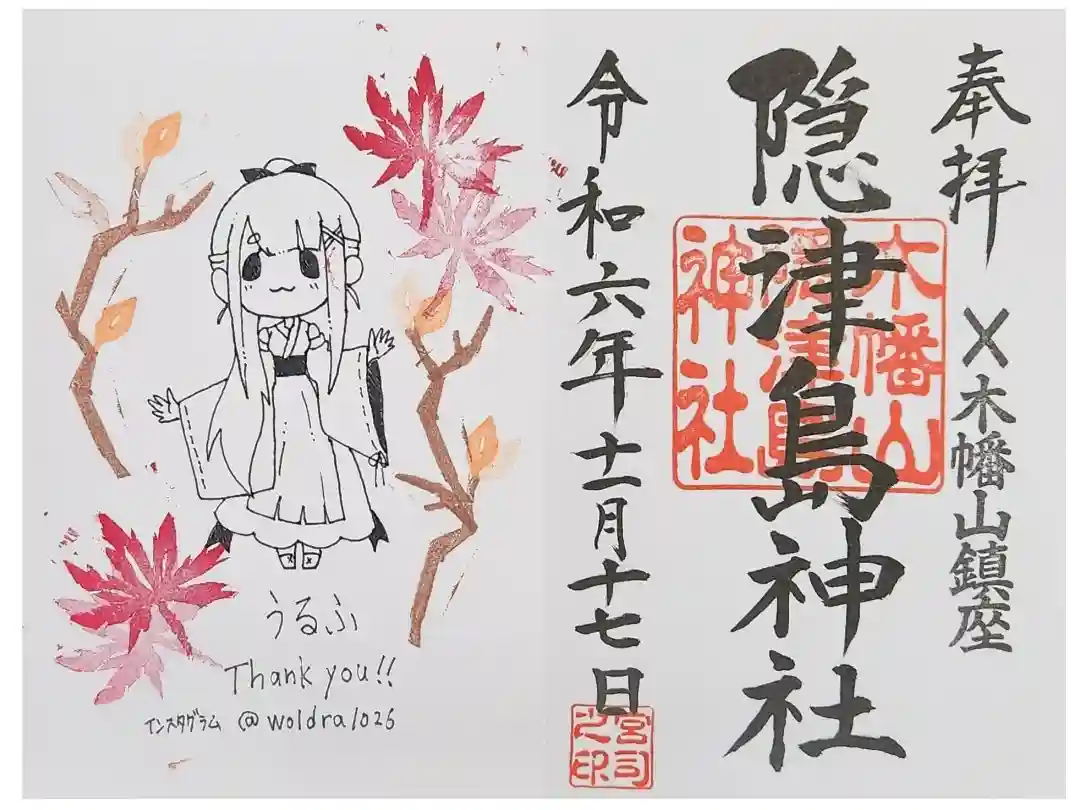 奉拝
X木幡山鎮座
隠津島神社
木幡山
隠津島
神社
令和六年十一月十七日
宮司
之印
うるふ
Thank you!!
インスタグラム @woldra1026